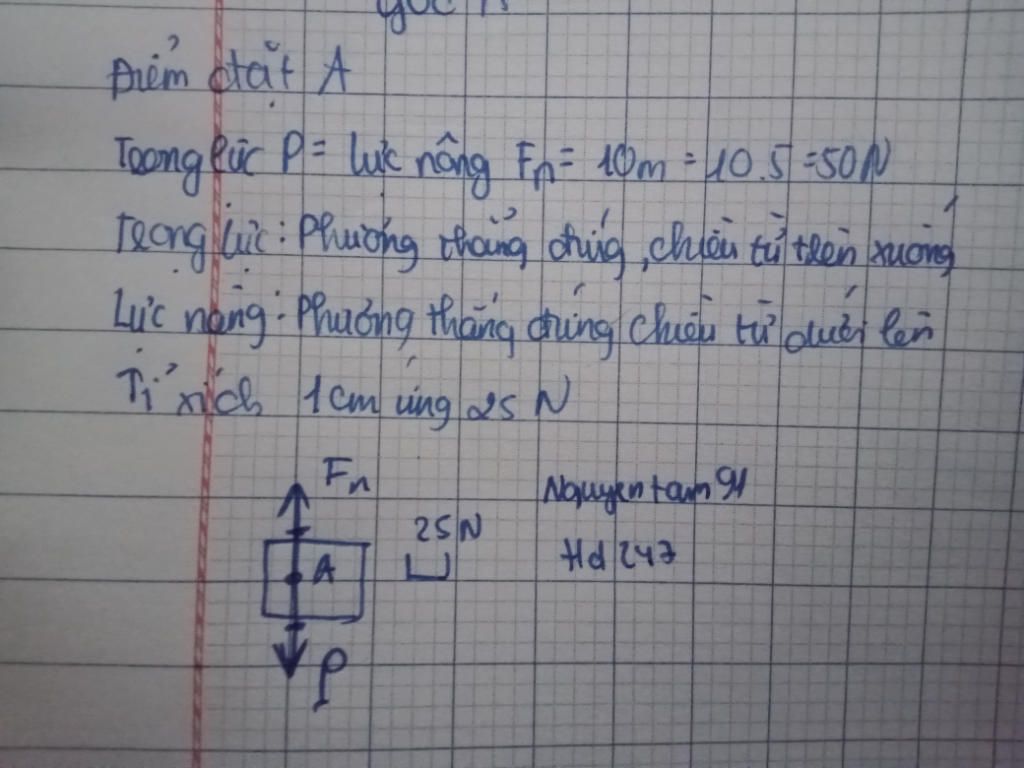 góc
Điểm đặt A
Trọng lực P = lực nâng Fn = 10m = 10.5 = 50N
Trọng lực: Phương thẳng đứng, chiều từ trên xuống
Lực nâng: Phương thẳng đứng chiều từ dưới lên
Tỉ xích 1cm ứng 25 N
Fn
Nguyentam91
25N
Hd 247
A
P